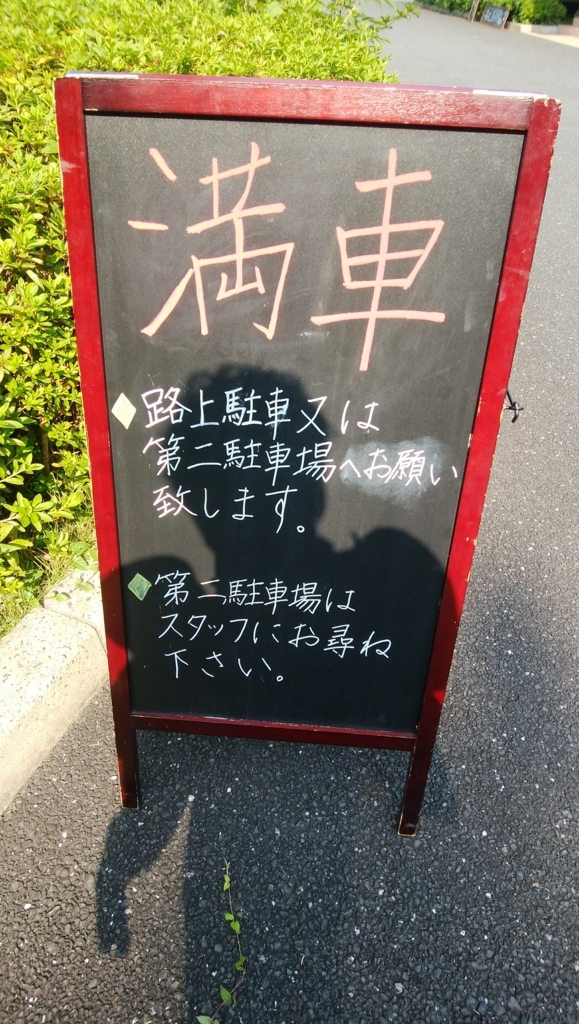 満車
路上駐車又は
第二駐車場へお願い
致します。
第二駐車場は
スタッフにお尋ね
下さい。